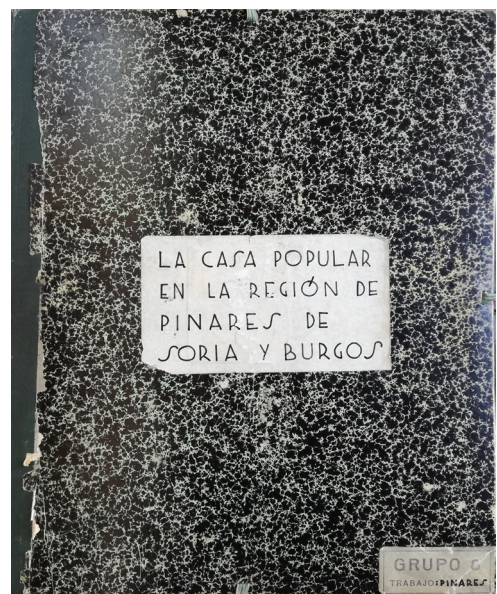 LA CASA POPULAR
EN LA REGIÓN DE
PINARES DE
SORIA Y BURGOS
GRUPO
TRABAJO: PINARES